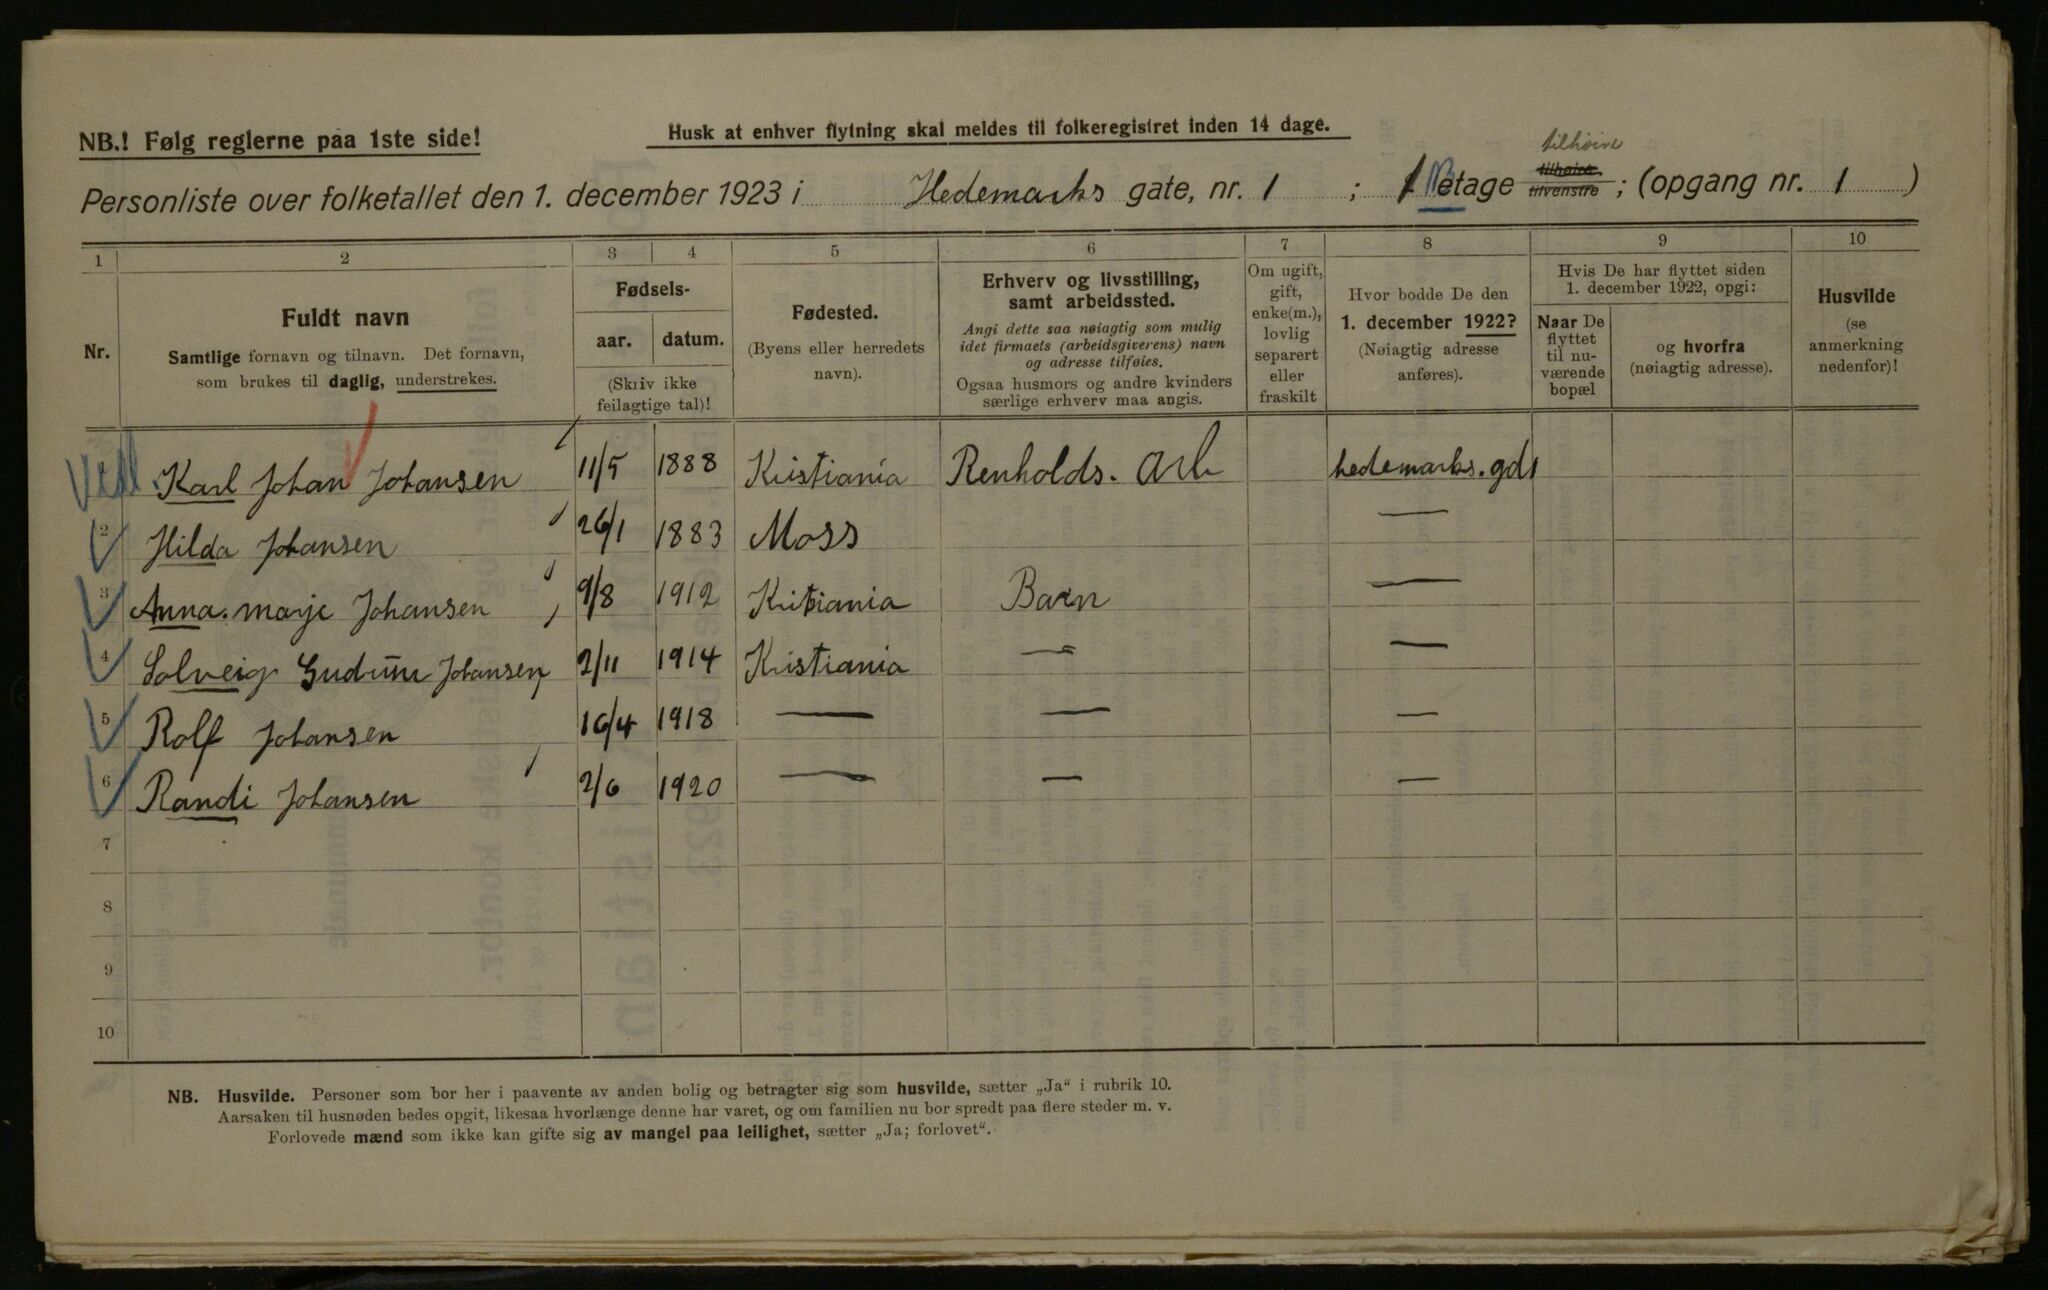 NB.! Følg reglerne paa 1ste side!
Husk at enhver flytning skal meldes til folkeregistret inden 14 dage.
tilhøire
Personliste over folketallet den 1. december 1923 i Hedemarks gate, nr. 1 ; 1 etage tilhøire. tilvenstre ; (opgang nr. 1 )
1 2 3 4 5 6 7 8 9 10
Nr.
Fuldt navn
Samtlige fornavn og tilnavn. Det fornavn,
som brukes til daglig, understrekes.
Fødsels-
aar. datum.
(Skriv ikke
feilagtige tal)!
Fødested.
(Byens eller herredets
navn).
Erhverv og livsstilling,
samt arbeidssted.
Angi dette saa nøiagtig som mulig
idet firmaets (arbeidsgiverens) navn
og adresse tilføies.
Ogsaa husmors og andre kvinders
særlige erhverv maa angis.
Om ugift,
gift,
enke(m.),
lovlig
separert
eller
fraskilt
Hvor bodde De den
1. december 1922?
(Nøiagtig adresse
anføres).
Hvis De har flyttet siden
1. december 1922, opgi:
Naar De
flyttet
til nu-
værende
bopæl
og hvorfra
(nøiagtig adresse).
Husvilde
(se
anmerkning
nedenfor)!
Karl Johan Johansen 11/5 1888 Kristiania Renholds. Arb hedemarks. gd1
2 Hilda Johansen 26/1 1883 Moss —
3 Anna. marje Johansen 9/8 1912 Kritiania Barn —
4 Solveig Gudrun Johansen 2/11 1914 Kristiania — —
5 Rolf Johansen 16/4 1918 — — —
6 Randi Johansen 2/6 1920 — — —
7
8
9
10
NB. Husvilde. Personer som bor her i paavente av anden bolig og betragter sig som husvilde, sætter „Ja“ i rubrik 10.
Aarsaken til husnøden bedes opgit, likesaa hvorlænge denne har varet, og om familien nu bor spredt paa flere steder m. v.
Forlovede mænd som ikke kan gifte sig av mangel paa leilighet, sætter „Ja; forlovet“.